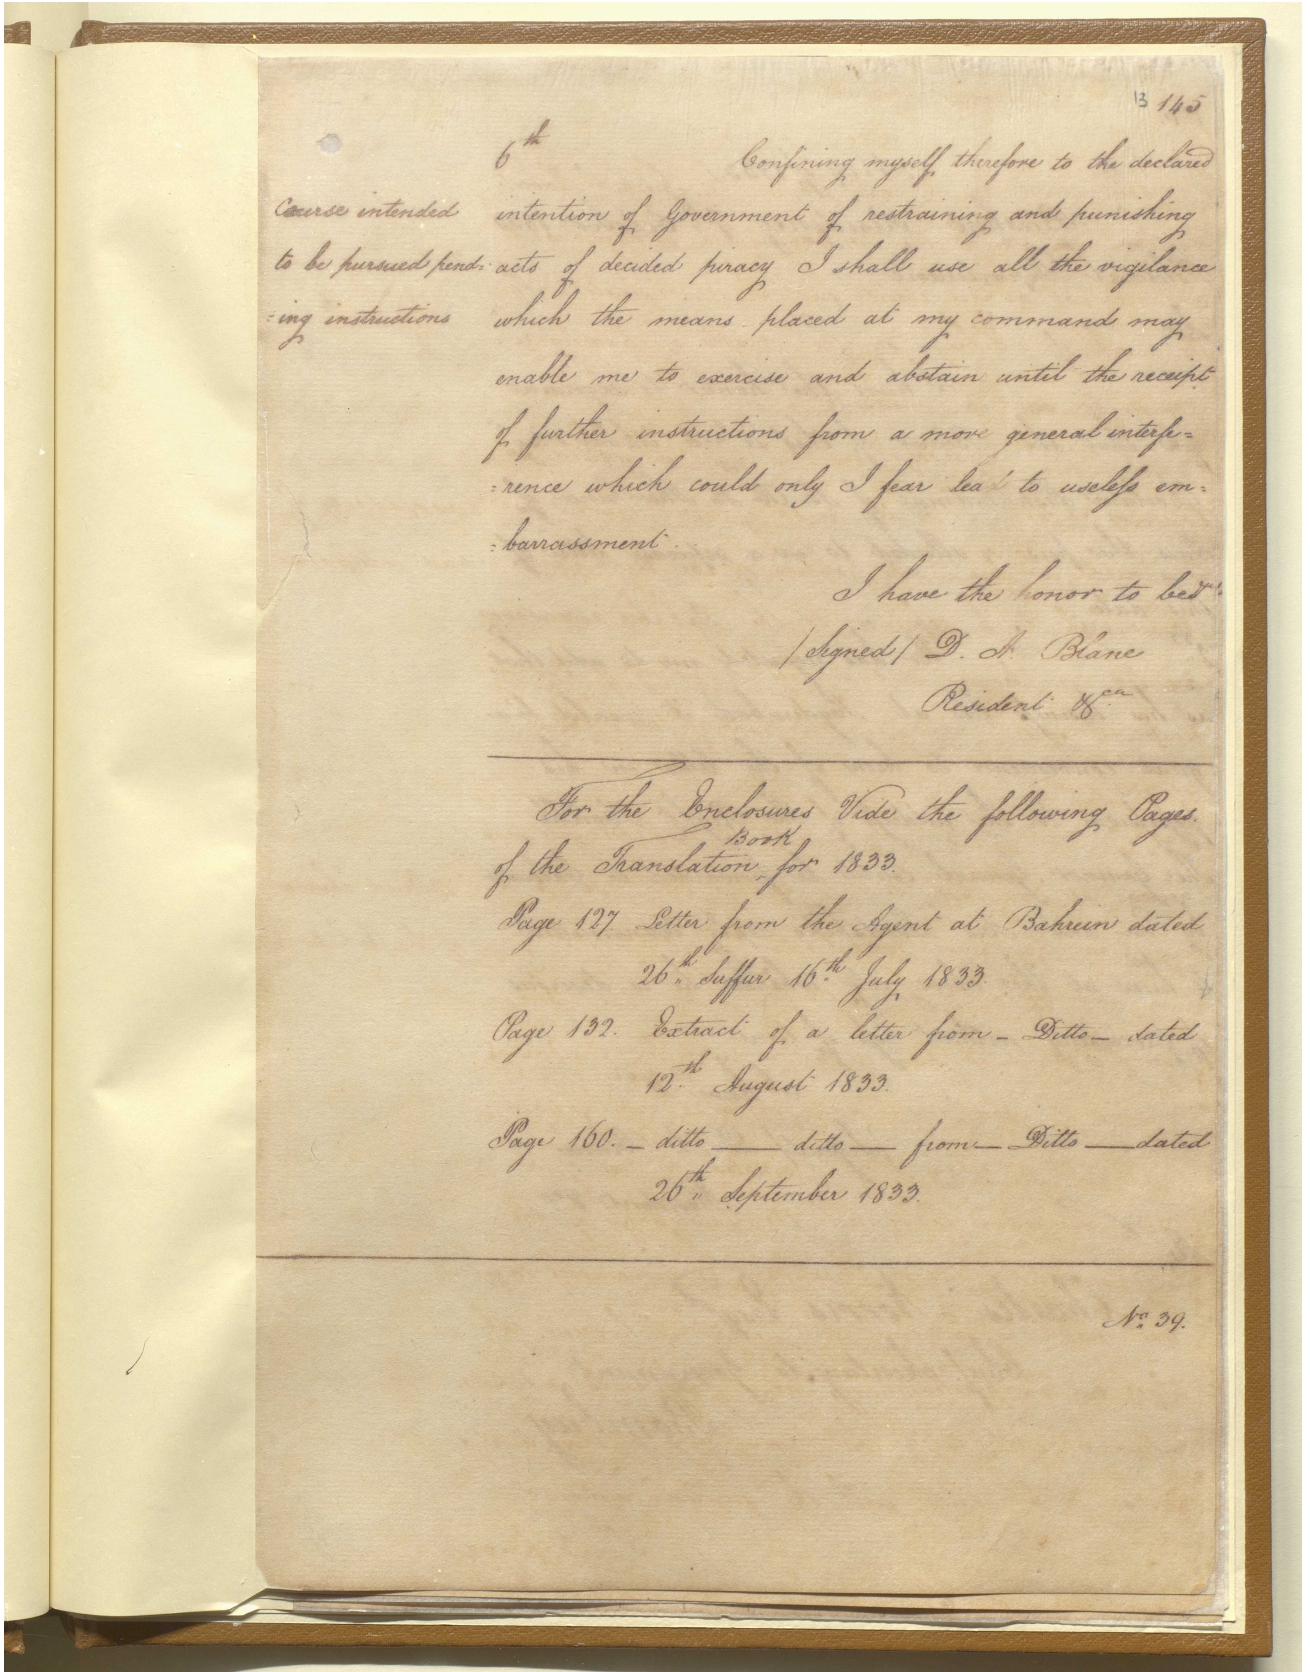 13 145
6th Confining myself therefore to the declared
Course intended
to be pursued pend=
=ing instructions
intention of Government of restraining and punishing
acts of decided piracy I shall use all the vigilance
which the means placed at my command may
enable me to exercise and abstain until the receipt
of further instructions from a more general interfe=
=rence which could only I fear lead to useless em=
=barrassment.
I have the honor to be &ca
/Signed/ D. A. Blane
Resident &ca
For the Enclosures Vide the following Pages
of the Translation Book for 1833.
Page 127 Letter from the Agent at Bahrein dated
26th Suffur 16th July 1833.
Page 132. Extract of a letter from – Ditto – dated
12th August 1833.
Page 160. – ditto — ditto — from – Ditto — dated
26th September 1833.
No. 39.